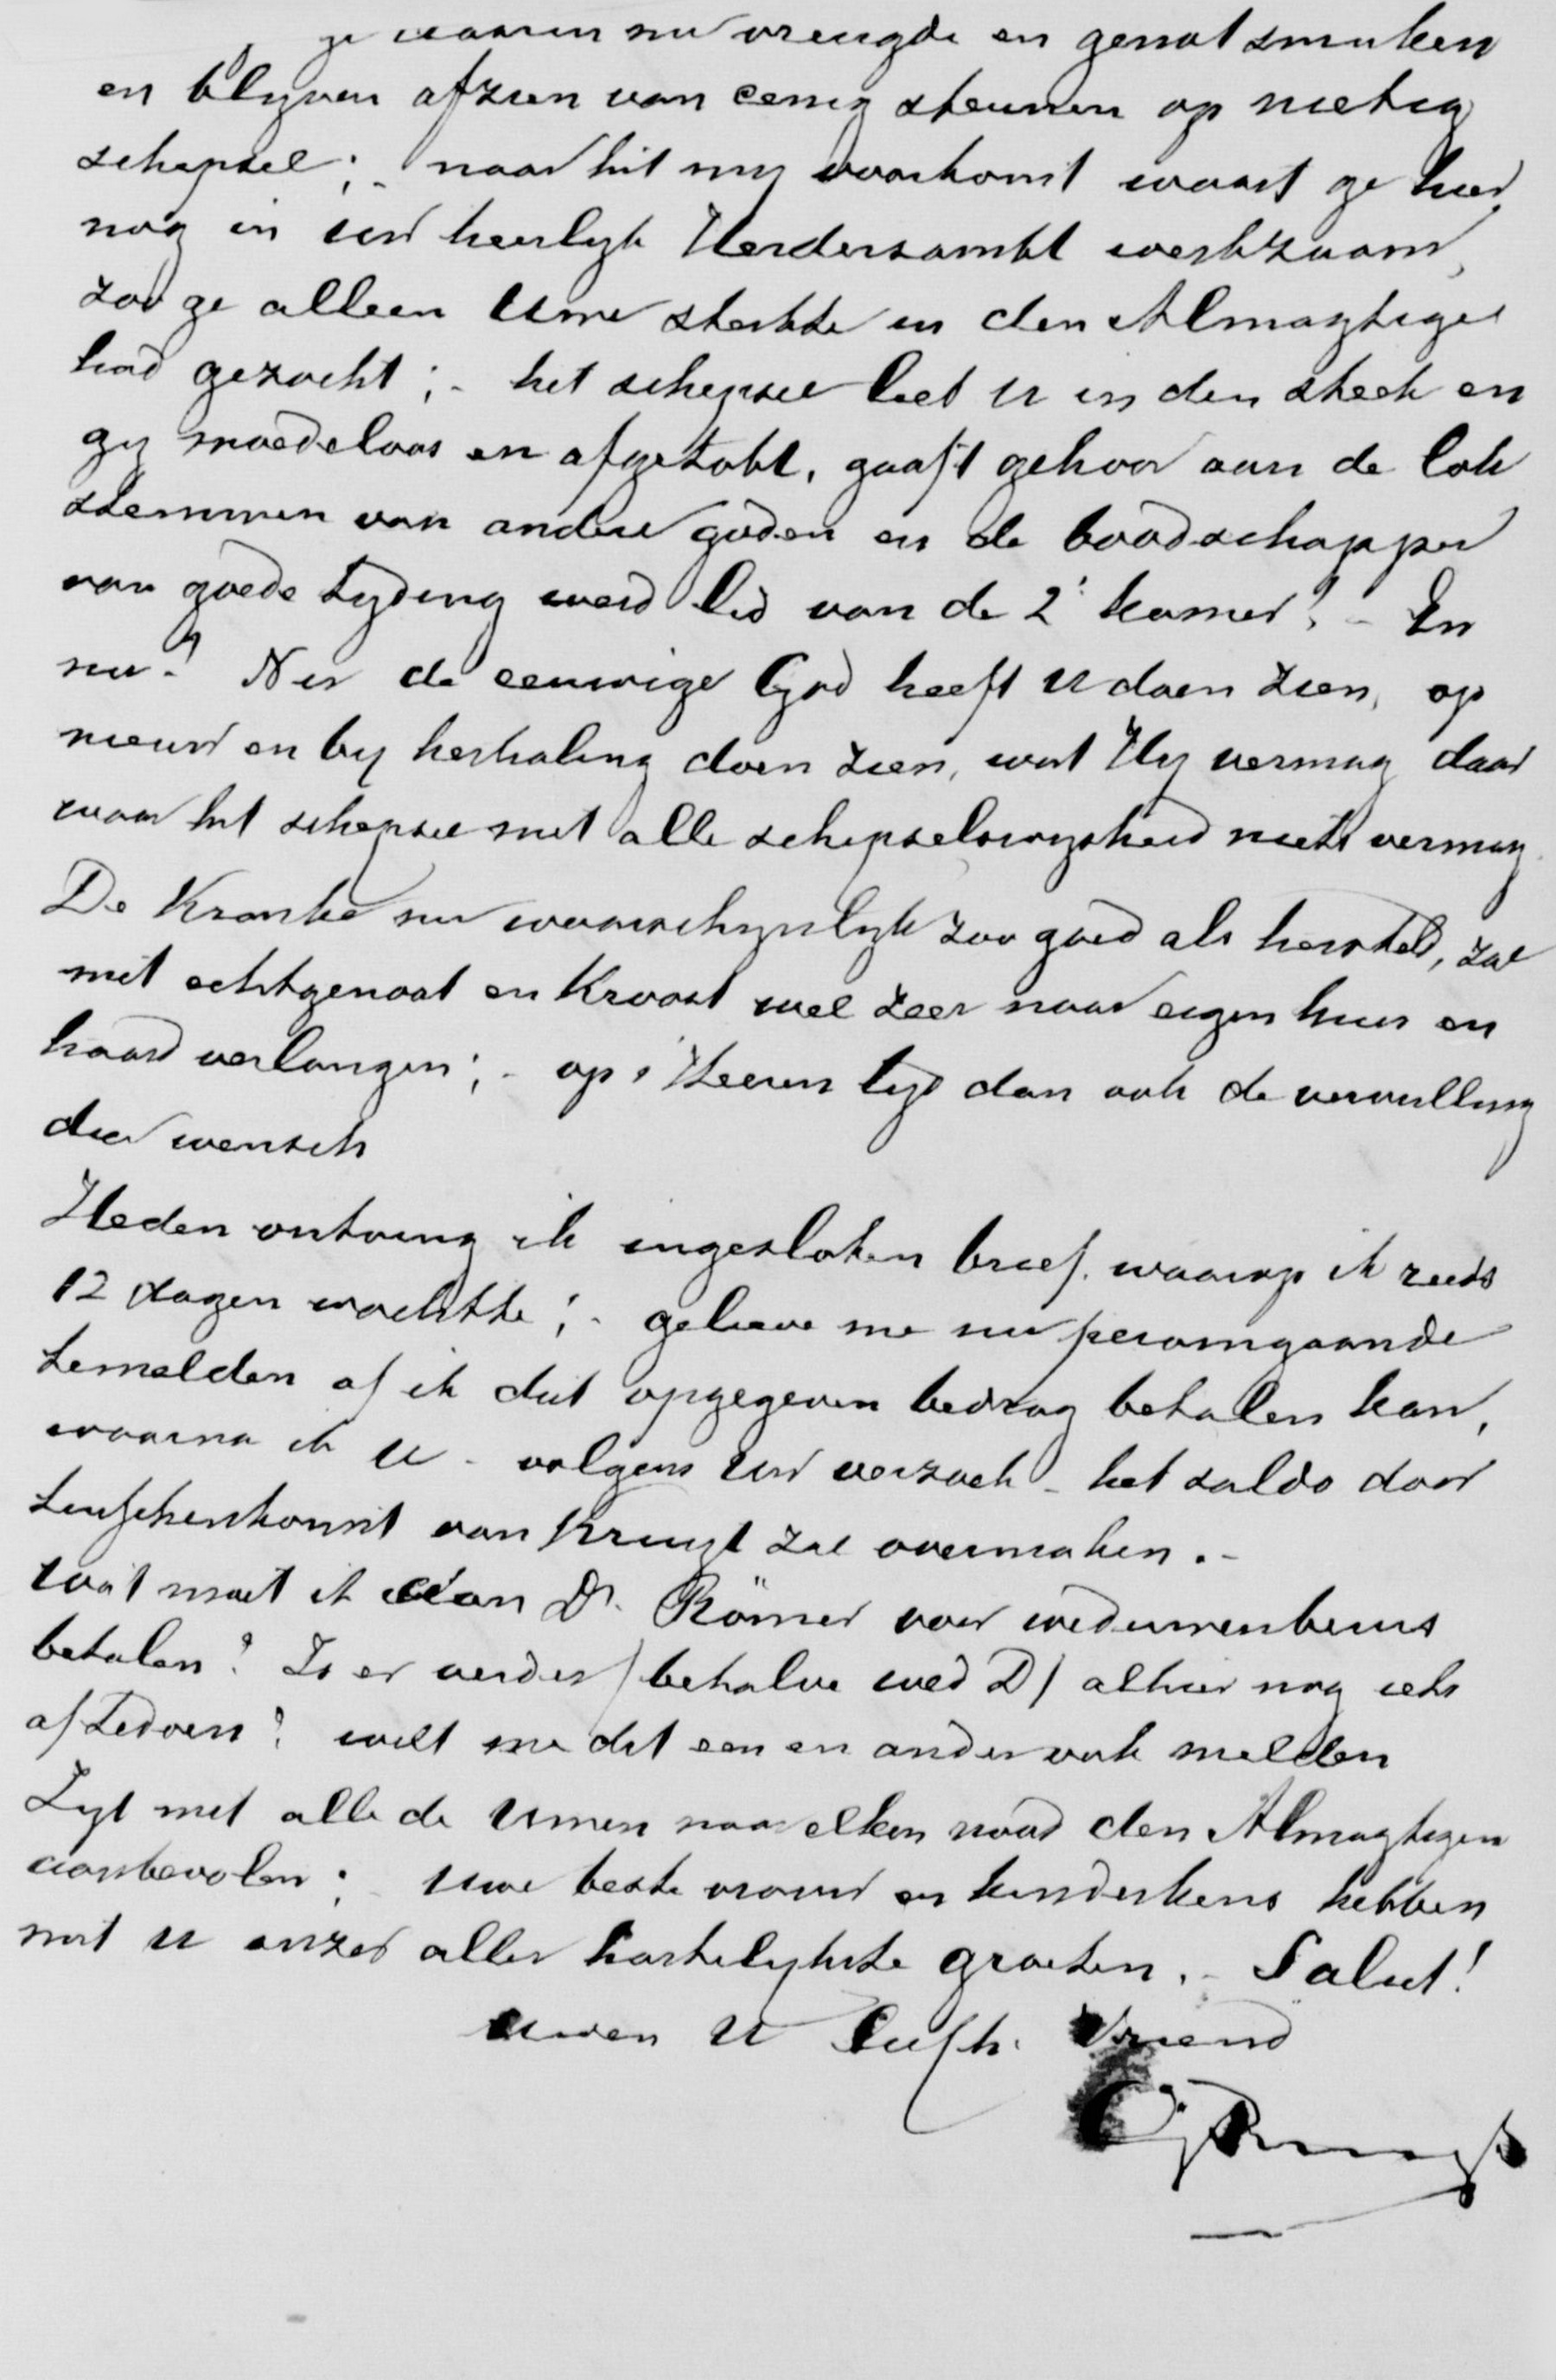 ge waaren nu vreugde en genot smaken
en blijven afzien van eenig steunen op nietig
schepsel; - naar het mij voorkomt waart ge hier
nog in uw heerlijk Herdersambt werkzaam,
zoo ge alleen Uwe sterkte in den Almagtigen
had gezocht; - het schepsel liet U in den steek en
gij moedeloos en afgetobt, gaaft gehoor aan de lok
stemmen van andere goden en de boodschapper
van goede tyding werd lid van de 2e kamer! - En
nu? Nu de eeuwige God heeft U doen zien, op
nieuw en by herhaling doen zien, wat Hy vermag daar
waar het schepsel met alle schepselswysheid niets vermag.
De Kranke nu waarschynlyk zoo goed als hersteld, zal
met echtgenoot en Kroost wel zeer naar eigen huis en
haard verlangen; - op 's Heeren tyd dan ook de vervulling
dier wensch
Heden ontving ik ingesloten brief, waarop ik reeds
12 dagen wachtte; - gelieve me nu peromgaande
temelden of ik dit opgegeven bedrag betalen kan,
waarna ik U - volgens Uw verzoek - het saldo door
tusschenkomst van Kruyt zal overmaken. -
Wat moet ik aan Dr. Römer voor weduwenbeurs
betalen? Is er verder (behalve wed D) alhier nog iets
aftedoen? wilt me dit een en ander ook melden
Zyt met alle de Uwen naar elken nood den Almagtigen
aanbevolen; - Uwe beste vrouw en kinderkens hebben
met U onzer aller hartelykste groeten. - Salut!
Uwen U liefh. Vriend